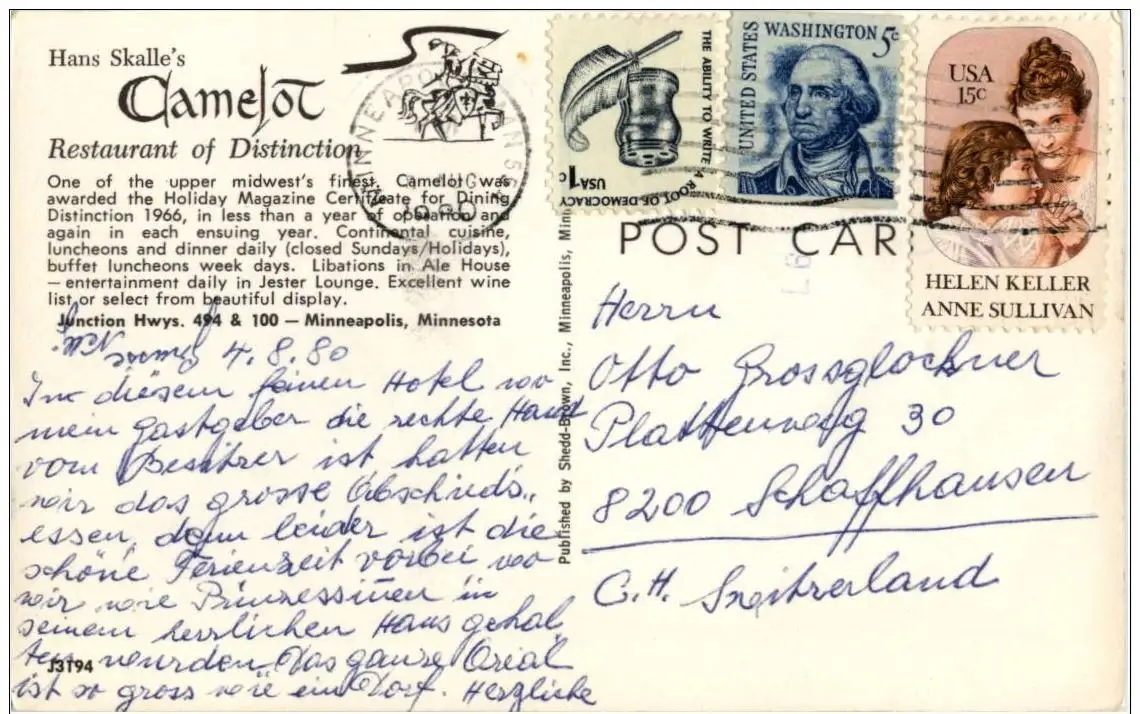 Hans Skalle's
Camelot
Restaurant of Distinction
One of the upper midwest's finest. Camelot was
awarded the Holiday Magazine Certificate for Dining
Distinction 1966, in less than a year of operation and
again in each ensuing year. Continental cuisine,
luncheons and dinner daily (closed Sundays/Holidays),
buffet luncheons week days. Libations in Ale House
— entertainment daily in Jester Lounge. Excellent wine
list or select from beautiful display.
Junction Hwys. 494 & 100 — Minneapolis, Minnesota
4.8.80
In diesem feinen Hotel wo
mein Gastgeber die rechte Hand
vom Besitzer ist hatten
wir das grosse Abschieds,,
essen, denn leider ist die
schöne Ferienzeit vorbei wo
wir wie Prinzessinen in
seinem herrlichen Haus gehal
ten wurden. Das ganze Areal
ist so gross wie ein Dorf. Herzliche
J3194
Published by Shedd-Brown, Inc., Minneapolis, Minn
MINNEAPOLIS MN 55
AUG
1980
USA 1c
THE ABILITY TO WRITE A ROOT OF DEMOCRACY
UNITED STATES
WASHINGTON 5c
USA
15c
HELEN KELLER
ANNE SULLIVAN
POST CAR
Herrn
Otto Grossglockner
Plattenweg 30
8200 Schaffhausen
C.H. Switzerland